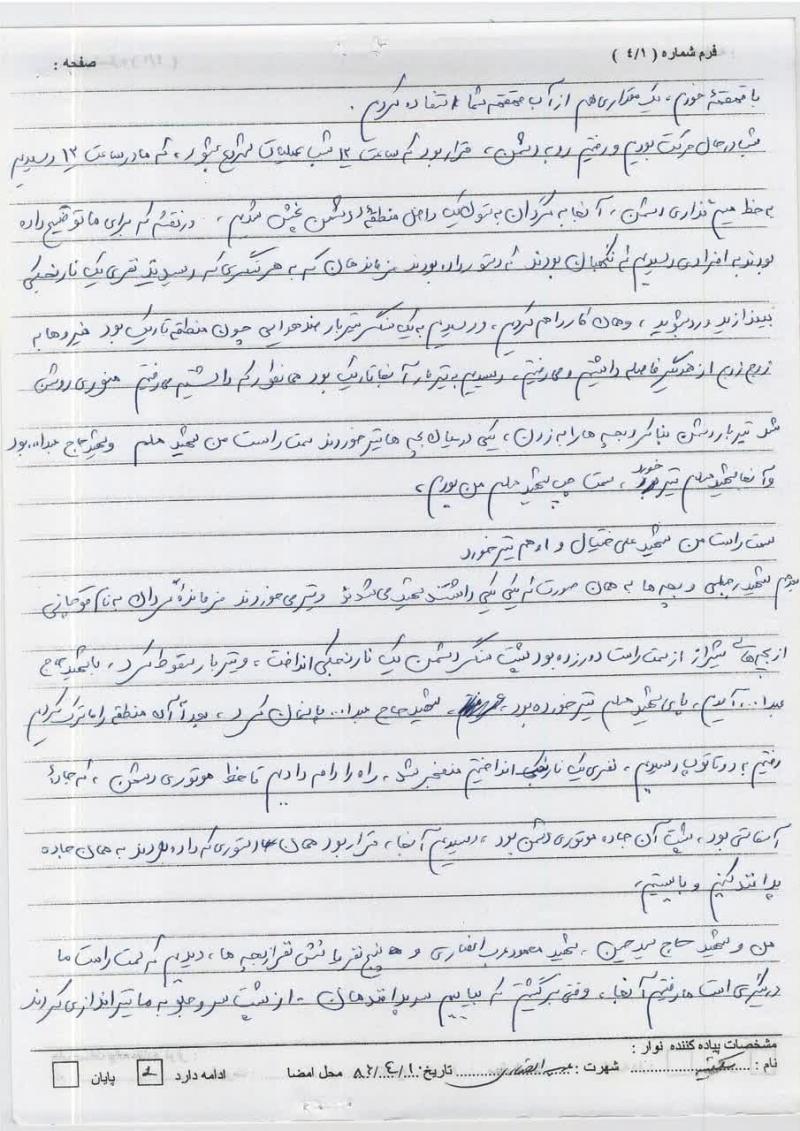 فرم شماره ( ٤/١ )
صفحه :
با قمقمهٔ خودم ، یک مقداری هم از آب قمقمه شما استفاده کردیم .
شب در حال حرکت بودیم و رفتیم رو به دشمن ، قرار بود که ساعت ۱۲ شب عملیات شروع بشود ، که ما در ساعت ۱۲ رسیدیم
به خط میم گذاری دشمن ، آنجا به گردان به ستون یک داخل منطقهٔ دشمن پخش شدیم ، در نقشه که برای ما توضیح داده
بودند به افرادی رسیدیم که نگهبان بودند که دستور داده بودند فرمانده مان که به هر سنگری که رسیدید نفری یک نارنجکی
بیندازید و رد بشوید ، و همان کار را هم کردیم ، و رسیدیم به یک سنگر تیربار ضد هوایی چون منطقه تاریک بود نیروها به
زوج زوج از همدیگر فاصله داشتیم و می رفتیم ، رسیدیم به تیربار آنجا تاریک بود همانطور که داشتیم می رفتیم منوری روشن
شد تیربار دشمن بنا کرد بچه ها را به زدن ، یکی در میان بچه ها تیر خوردند سمت راست من شهید و شهید حاج عبدا... بود
و آنجا شهید تیر خورد ، سمت چپ شهید من بودم ،
سمت راست من شهید علی و او هم تیر خورد
شهید رجبی و بچه ها به همان صورت که یکی یکی داشتند شهید می شدند و تیر می خوردند فرماندهٔ گردان به نام
از بچه های شیراز از سمت راست دور زده بود پشت سنگر دشمن یک نارنجکی انداخت ، و تیربار سقوط کرد ، با شهید حاج
عبدا... آمدیم ، پای شهید تیر خورده بود ، شهید حاج عبدا... پانسمان کرد ، بعد از آن منطقه را ما ترک کردیم
رفتیم به دو تا توپ رسیدیم ، نفری یک نارنجک انداختیم منفجر شد ، راه را ادامه دادیم تا خط موتوری دشمن ، که جادهٔ
آسفالتی بود ، پشت آن جاده موتوری دشمن بود ، رسیدیم آنجا ، قرار بود همان دستوری که داده بودند به همان جاده
پدافند کنیم و بایستیم ،
من و شهید حاج سید حسین ، شهید محمود عرب انصاری و پنج نفر یا شش نفر از بچه ها ، دیدیم که سمت راست ما
درگیری است ما رفتیم آنجا ، وقتی برگشتیم که بیاییم سر پدافندمان ، از پشت سر و جلو به ما تیراندازی کردند
مشخصات پیاده کننده نوار :
نام : شهرت : تاریخ: ۸۲/٤/۱۰ محل امضا ادامه دارد پایان